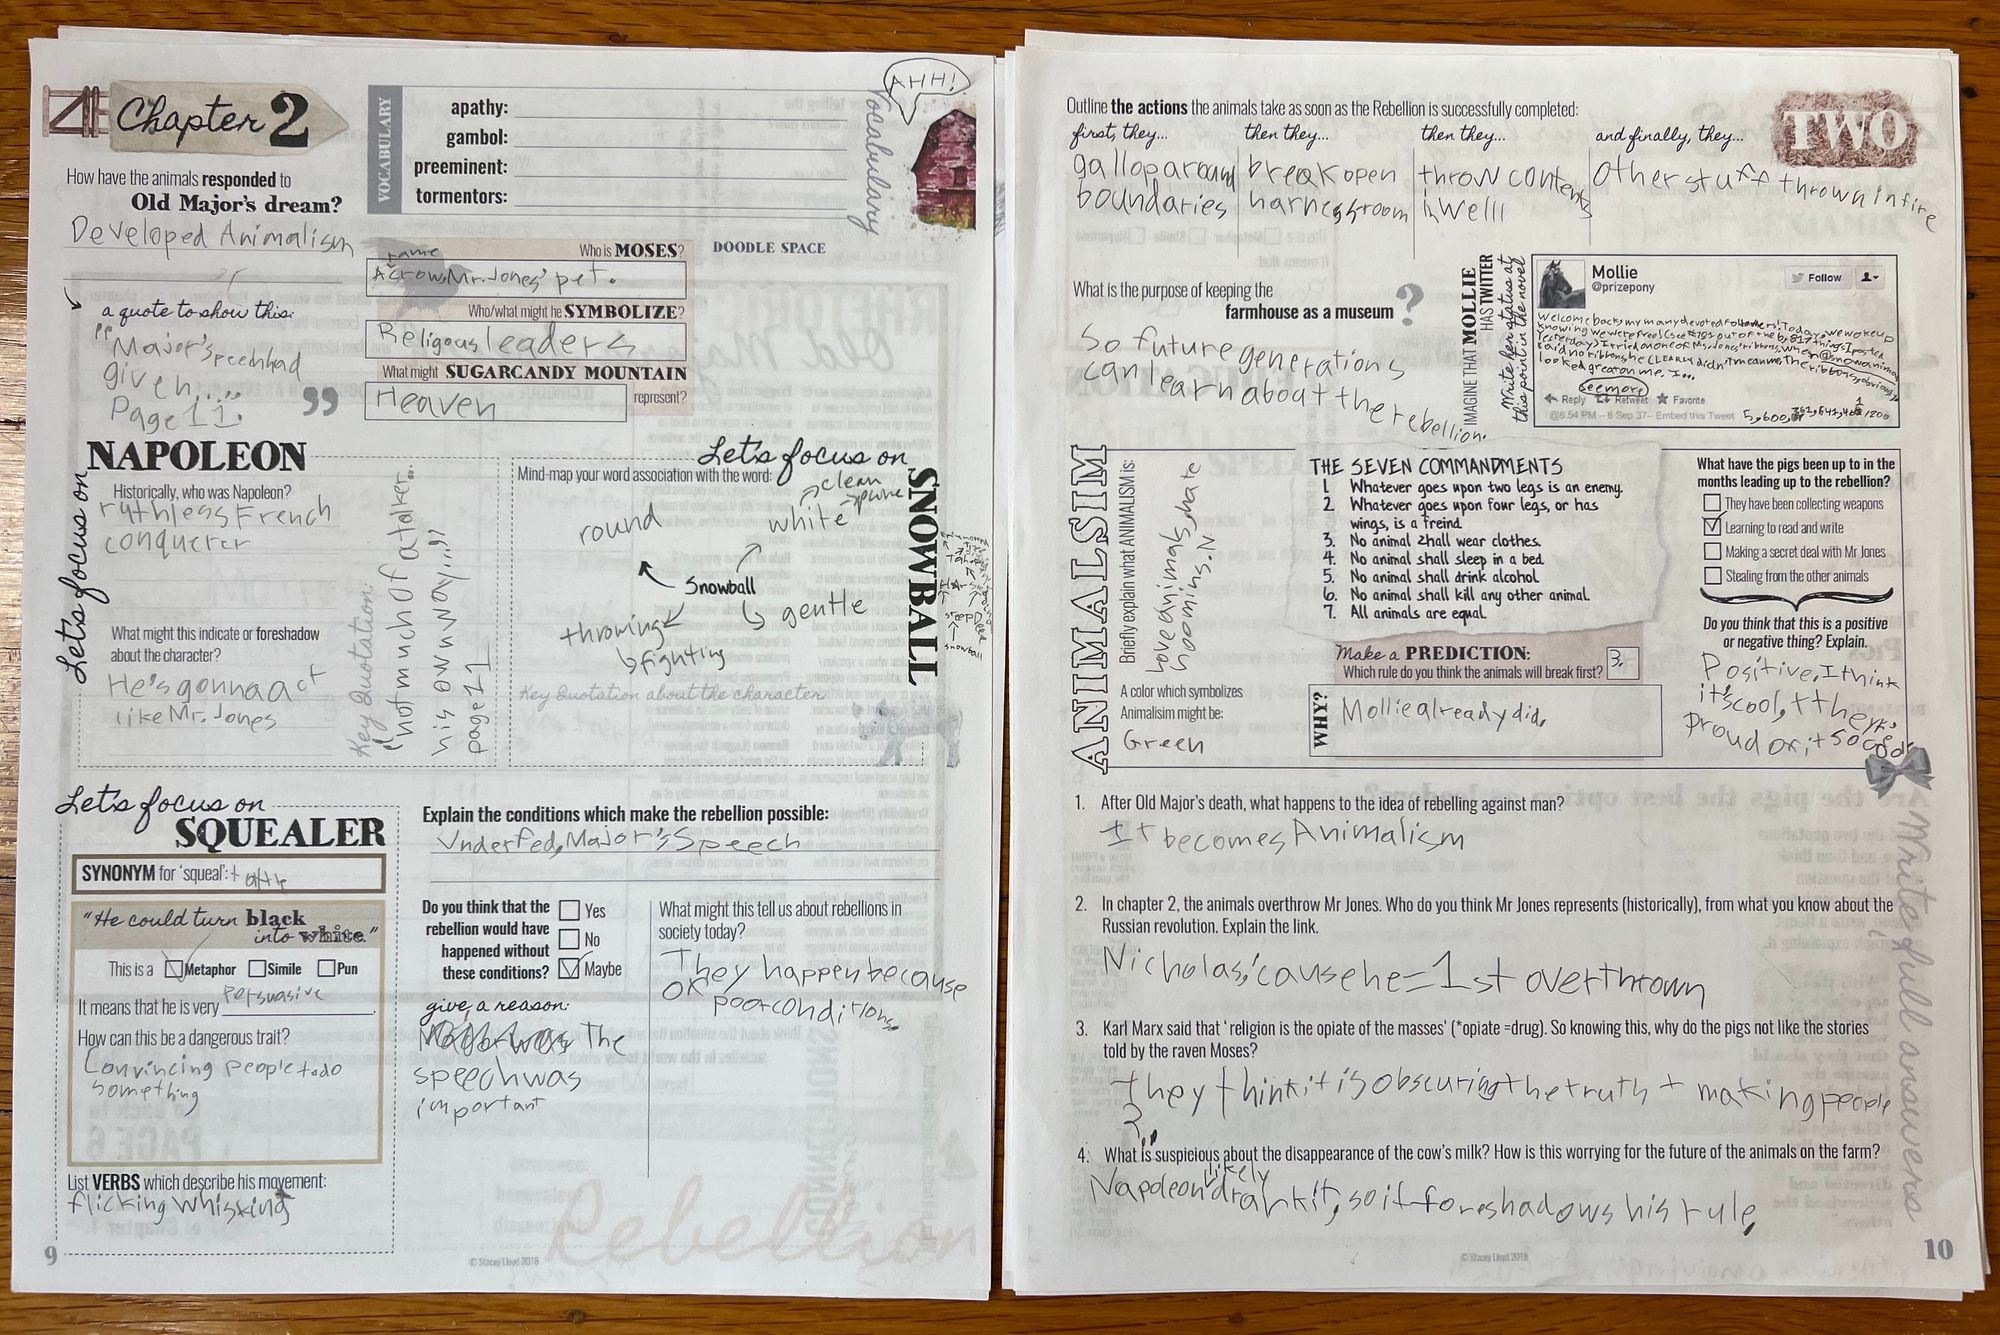 Chapter 2
VOCABULARY
apathy:
gambol:
preeminent:
tormentors:
AHH!
Vocabulary
How have the animals responded to
Old Major's dream?
Developed Animalism
a quote to show this:
"Major's speech had
given...."
Page 11.
Who is MOSES?
A tame crow, Mr. Jones' pet.
Who/what might he SYMBOLIZE?
Religous leaders
What might SUGARCANDY MOUNTAIN
represent?
Heaven
DOODLE SPACE
Let's focus on
NAPOLEON
Historically, who was Napoleon?
ruthless French
conquerer
What might this indicate or foreshadow
about the character?
He's gonna act
like Mr. Jones
Key Quotation:
"not much of a talker...
his own way...."
page 11
Let's focus on
SNOWBALL
Mind-map your word association with the word:
clean
pure
round
white
Snowball
throwing
gentle
fighting
Key Quotation about the character
snowball
Let's focus on
SQUEALER
SYNONYM for 'squeal': tattle
"He could turn black
into white."
This is a Metaphor Simile Pun
It means that he is very persuasive.
How can this be a dangerous trait?
Convincing people to do
something
List VERBS which describe his movement:
flicking whisking
Explain the conditions which make the rebellion possible:
Underfed, Major's Speech
Do you think that the
rebellion would have
happened without
these conditions?
Yes
No
Maybe
give a reason:
The
speech was
important
What might this tell us about rebellions in
society today?
They happen because
of poor conditions.
Rebellion
9
© Stacey Lloyd 2018
Outline the actions the animals take as soon as the Rebellion is successfully completed:
TWO
first, they...
gallop around
boundaries
then they...
break open
harness room
then they...
throw contents
in well
and finally, they...
other stuff thrown in fire
What is the purpose of keeping the
farmhouse as a museum?
So future generations
can learn about the rebellion.
IMAGINE THAT MOLLIE
HAS TWITTER
Write her status at
this point in the novel
Mollie
@prizepony
Follow
Welcome back, my many devoted followers! Today, we woke up
looked great on me. I...
see more
Reply Retweet Favorite
@6:54 PM – 6 Sep 37– Embed this Tweet
ANIMALSIM
Briefly explain what ANIMALISM is:
Love animals, hate
hoomins. N
A color which symbolizes
Animalisim might be:
Green
THE SEVEN COMMANDMENTS
1. Whatever goes upon two legs is an enemy.
2. Whatever goes upon four legs, or has
wings, is a freind.
3. No animal shall wear clothes.
4. No animal shall sleep in a bed.
5. No animal shall drink alcohol.
6. No animal shall kill any other animal.
7. All animals are equal.
Make a PREDICTION:
Which rule do you think the animals will break first? 3.
WHY?
Mollie already did.
What have the pigs been up to in the
months leading up to the rebellion?
They have been collecting weapons
Learning to read and write
Making a secret deal with Mr Jones
Stealing from the other animals
Do you think that this is a positive
or negative thing? Explain.
Positive, I think
it's cool, + they're
proud of it so good
1. After Old Major's death, what happens to the idea of rebelling against man?
It becomes Animalism
2. In chapter 2, the animals overthrow Mr Jones. Who do you think Mr Jones represents (historically), from what you know about the
Russian revolution. Explain the link.
Nicholas, 'cause he = 1st overthrown
3. Karl Marx said that ' religion is the opiate of the masses' (*opiate =drug). So knowing this, why do the pigs not like the stories
told by the raven Moses?
they think it is obscuring the truth + making people
?
4. What is suspicious about the disappearance of the cow's milk? How is this worrying for the future of the animals on the farm?
Napoleon likely drank it, so it foreshadows his rule.
Write full answers
© Stacey Lloyd 2018
10